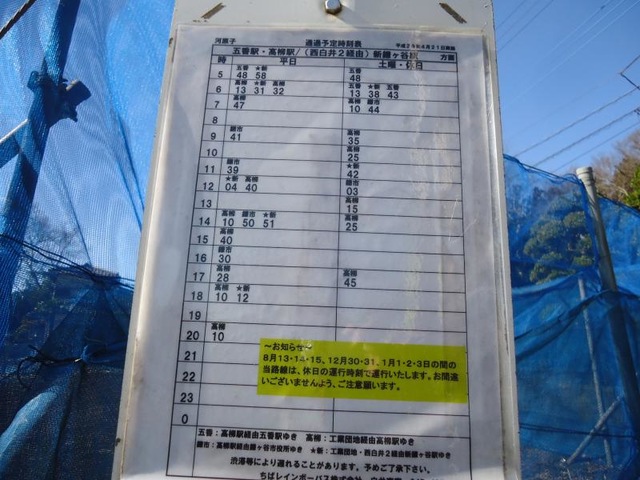 河原子 通過予定時刻表 平成29年4月21日実施
五香駅・高柳駅/(西白井2経由)新鎌ヶ谷駅 方面
時 平日 土曜・休日
五香 ★新 五香
5 48 58 48
高柳 ★新 高柳 五香 ★新 高柳
6 13 31 32 13 38 43
高柳 高柳 鎌市
7 47 10 44
8
鎌市 高柳
9 41 35
高柳
10 25
鎌市 ★新
11 39 42
★新 高柳 鎌市
12 04 40 03
高柳
13 15
高柳 鎌市 ★新 高柳
14 10 50 51 25
高柳
15 40
鎌市
16 30
高柳 高柳
17 28 45
高柳 ★新
18 10 12
19
高柳
20 10
21
22
23
0
~お知らせ~
8月13・14・15、12月30・31、1月1・2・3日の間の
当路線は、休日の運行時刻で運行いたします。お間違
いございませんよう、ご注意願います。
五香:高柳駅経由五香駅ゆき 高柳:工業団地経由高柳駅ゆき
鎌市:高柳駅経由鎌ヶ谷市役所ゆき ★新:工業団地・西白井2経由新鎌ヶ谷駅ゆき
渋滞等により遅れることがあります。予めご了承下さい。
ちばレインボーバス株式会社